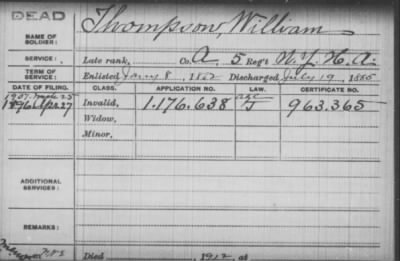 DEAD
NAME OF SOLDIER: Thompson, William
SERVICE: Late rank, Co. A, 5 Reg't N.Y. H.A.
TERM OF SERVICE: Enlisted Jany 8, 1862 Discharged July 19, 1865
DATE OF FILING. CLASS. APPLICATION NO. LAW. CERTIFICATE NO.
1907 25 age
1896 Apr. 27 Invalid, 1.176.638 963.365
Widow,
Minor,
ADDITIONAL SERVICES:
REMARKS:
Died , 1912, at